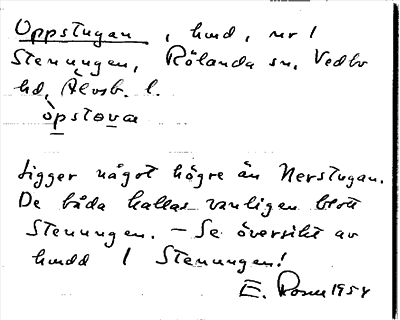 Oppstugan, hmd, nr 1
Stenungen, Rölanda sn, Vedbo
hd, Älvsb. l.
òpstova
Ligger något högre än Nerstugan.
De båda kallas vanligen blott
Stenungen. – Se översikt av
hmdd 1 Stenungen!
E. Rosen 1954